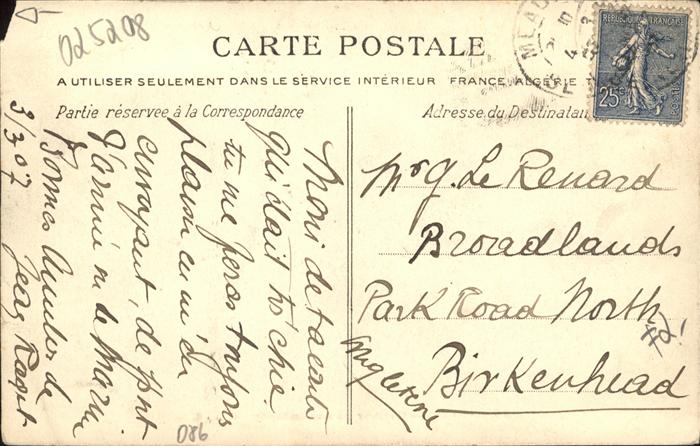 025208
CARTE POSTALE
A UTILISER SEULEMENT DANS LE SERVICE INTÉRIEUR FRANCE, ALGÉRIE T
Partie réservée à la Correspondance
Adresse du Destinatai
RÉPUBLIQUE FRANÇAISE
25c
POSTES
MEAU
Merci de ta carte
qui était très chic.
tu me feras toujours
plaisir en m'en
envoyant, de Pont
d'
Bonnes Amitiés de
Jean
3/3 07
Mr G. Le Renard
Broadlands
Park Road North
Birkenhead
Angleterre
086